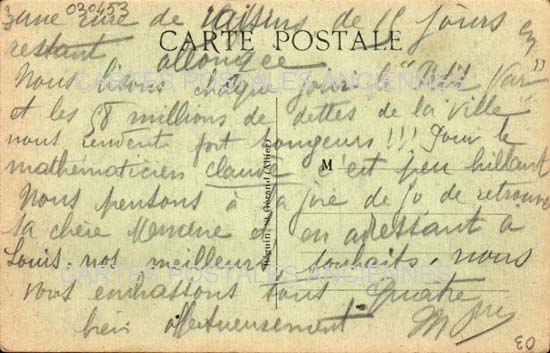 030453
cure de raisins de 15 jours en
restant allongée
CARTE POSTALE
Nous lisons chaque jour le "Petit Var"
CARTES POSTALES ANCIENNES
et les 58 millions de dettes de la ville
nous rendent fort songeurs !!! Pour le
mathématicien c'est peu brillant
M
Nous pensons à la joie de de retrouver
sa chère et en adressant à
Louis nos meilleurs souhaits, nous
CARTES POSTALES ANCIENNES
vous embrassons tous quatre
bien affectueusement